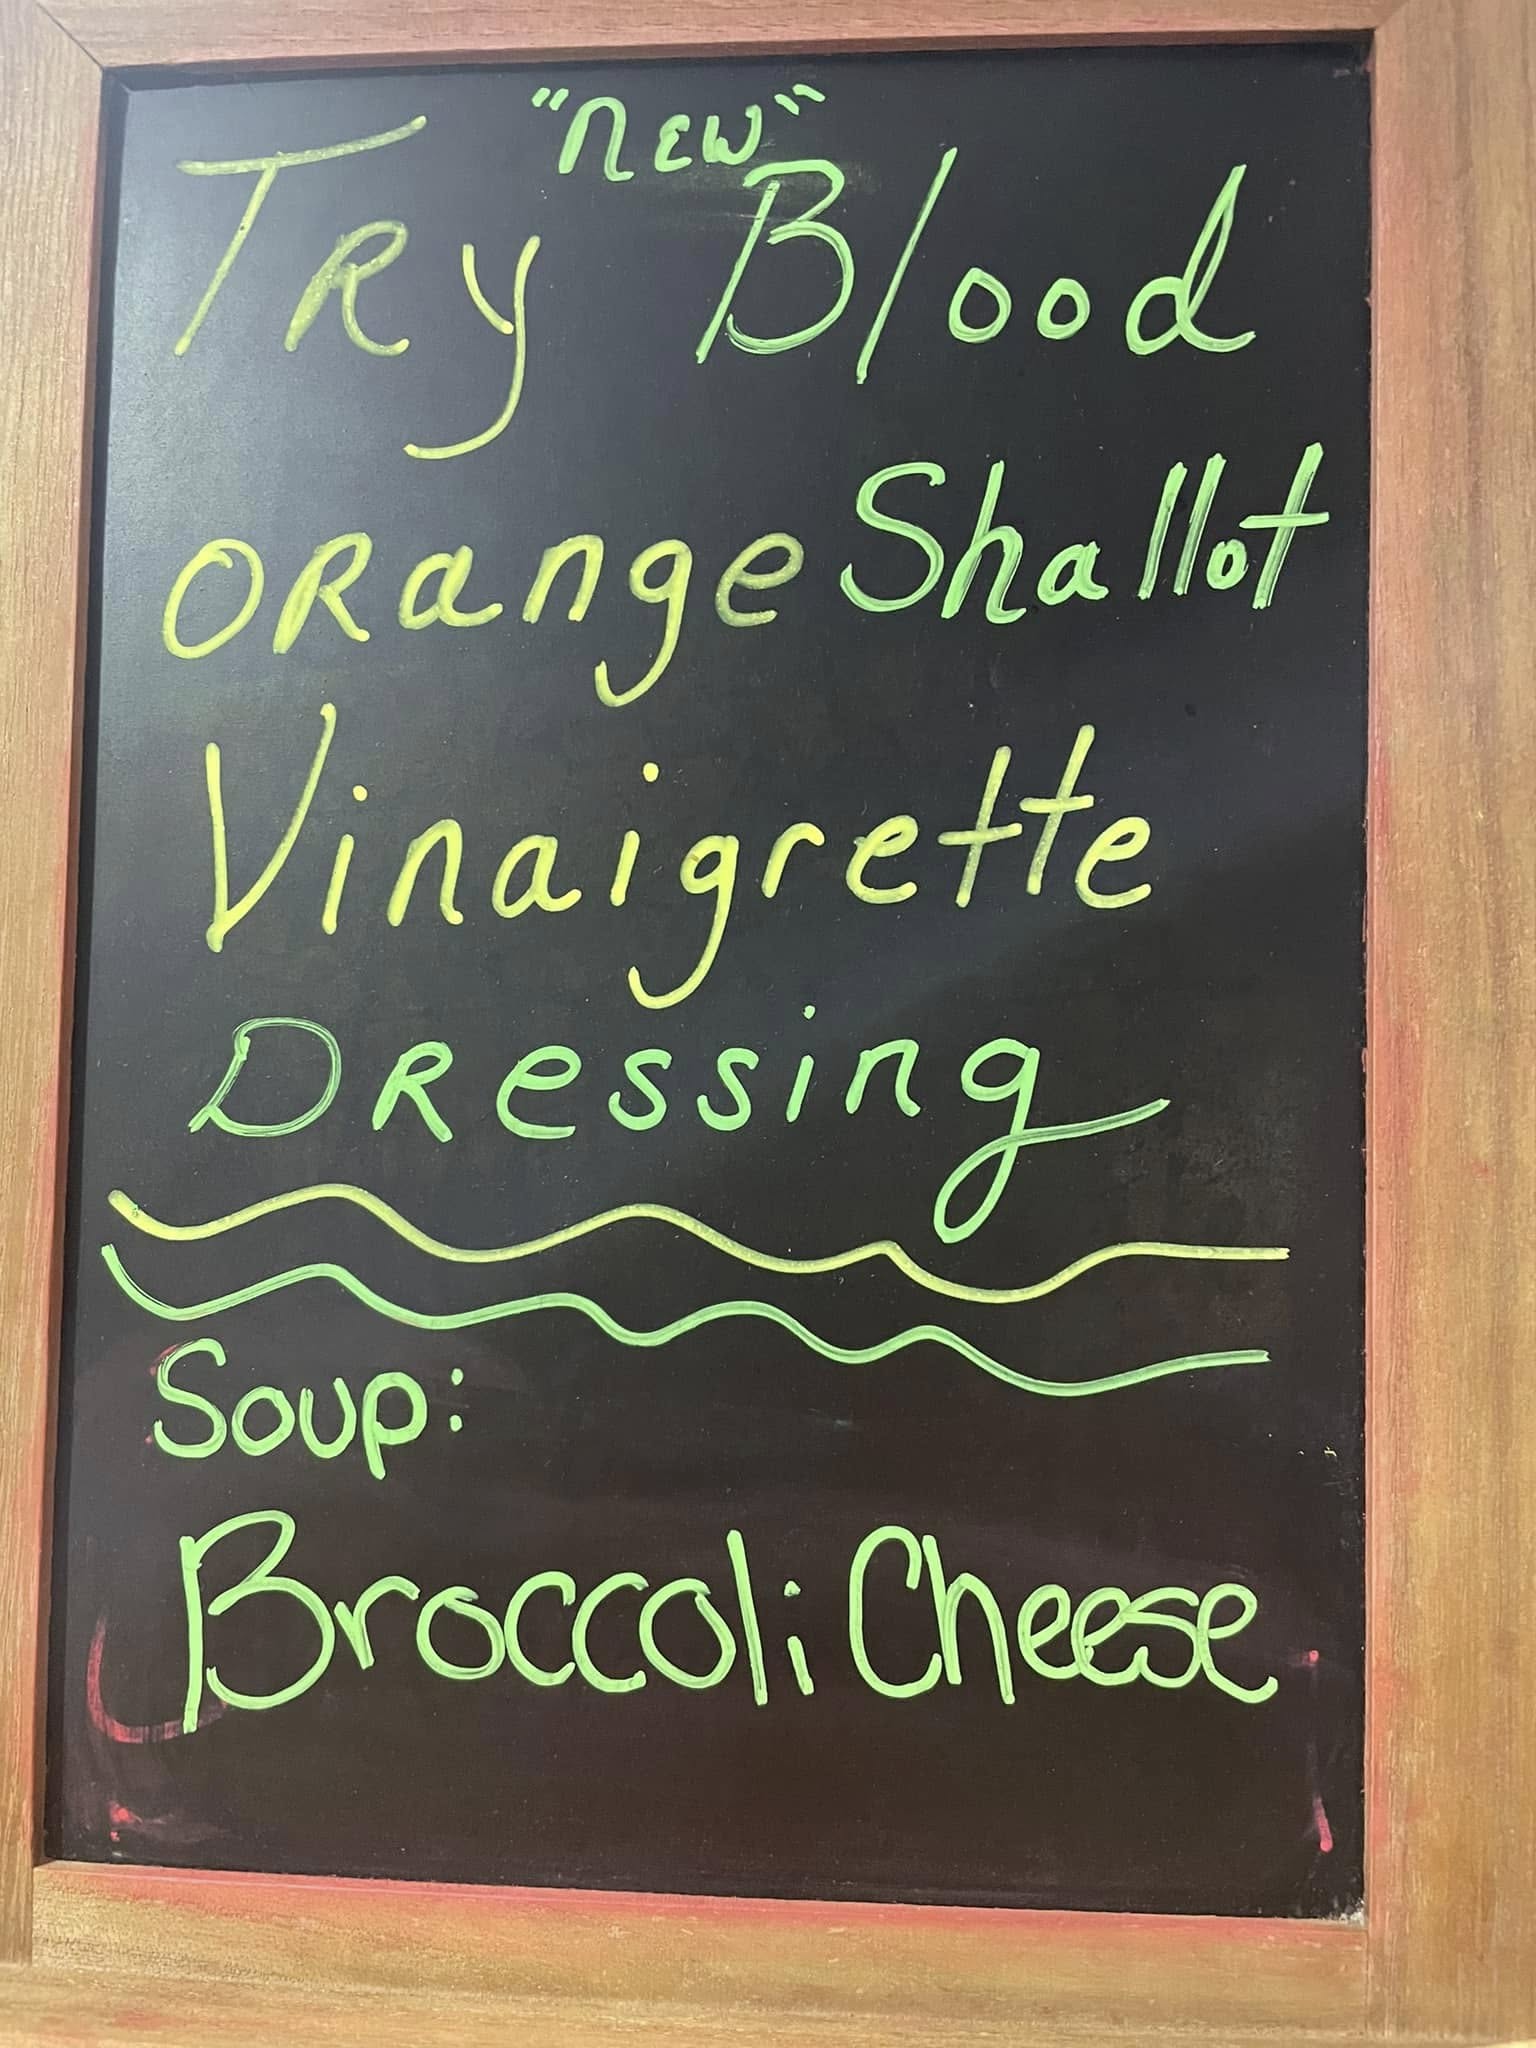 Try "new" Blood
Orange Shallot
Vinaigrette
Dressing
Soup:
Broccoli Cheese